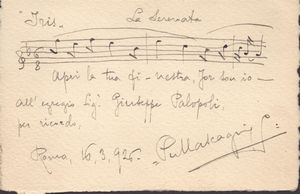 "Iris„ La Serenata
Apri la tua fi-nestra, Jor son io_
all'egregio Sg. Giuseppe Palopoli
per ricordo,
Roma, 16, 3, 925. PMascagni